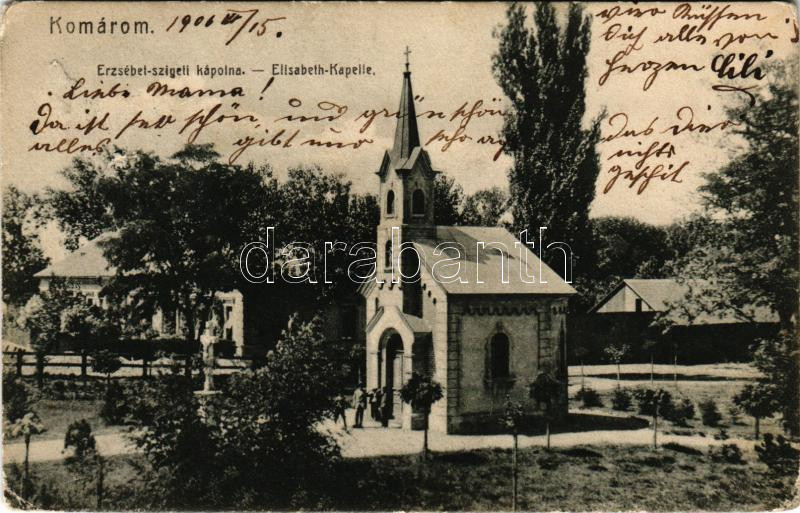 Komárom. 1906 III/15.
Erzsébet-szigeti kápolna. — Elisabeth-Kapelle.
Liebe Mama!
da ist sehr schön, und grün schön
alles, gibt und so
wir küssen
dich alle von
herzen Cili
das dir
nichts
geschit
darabanth